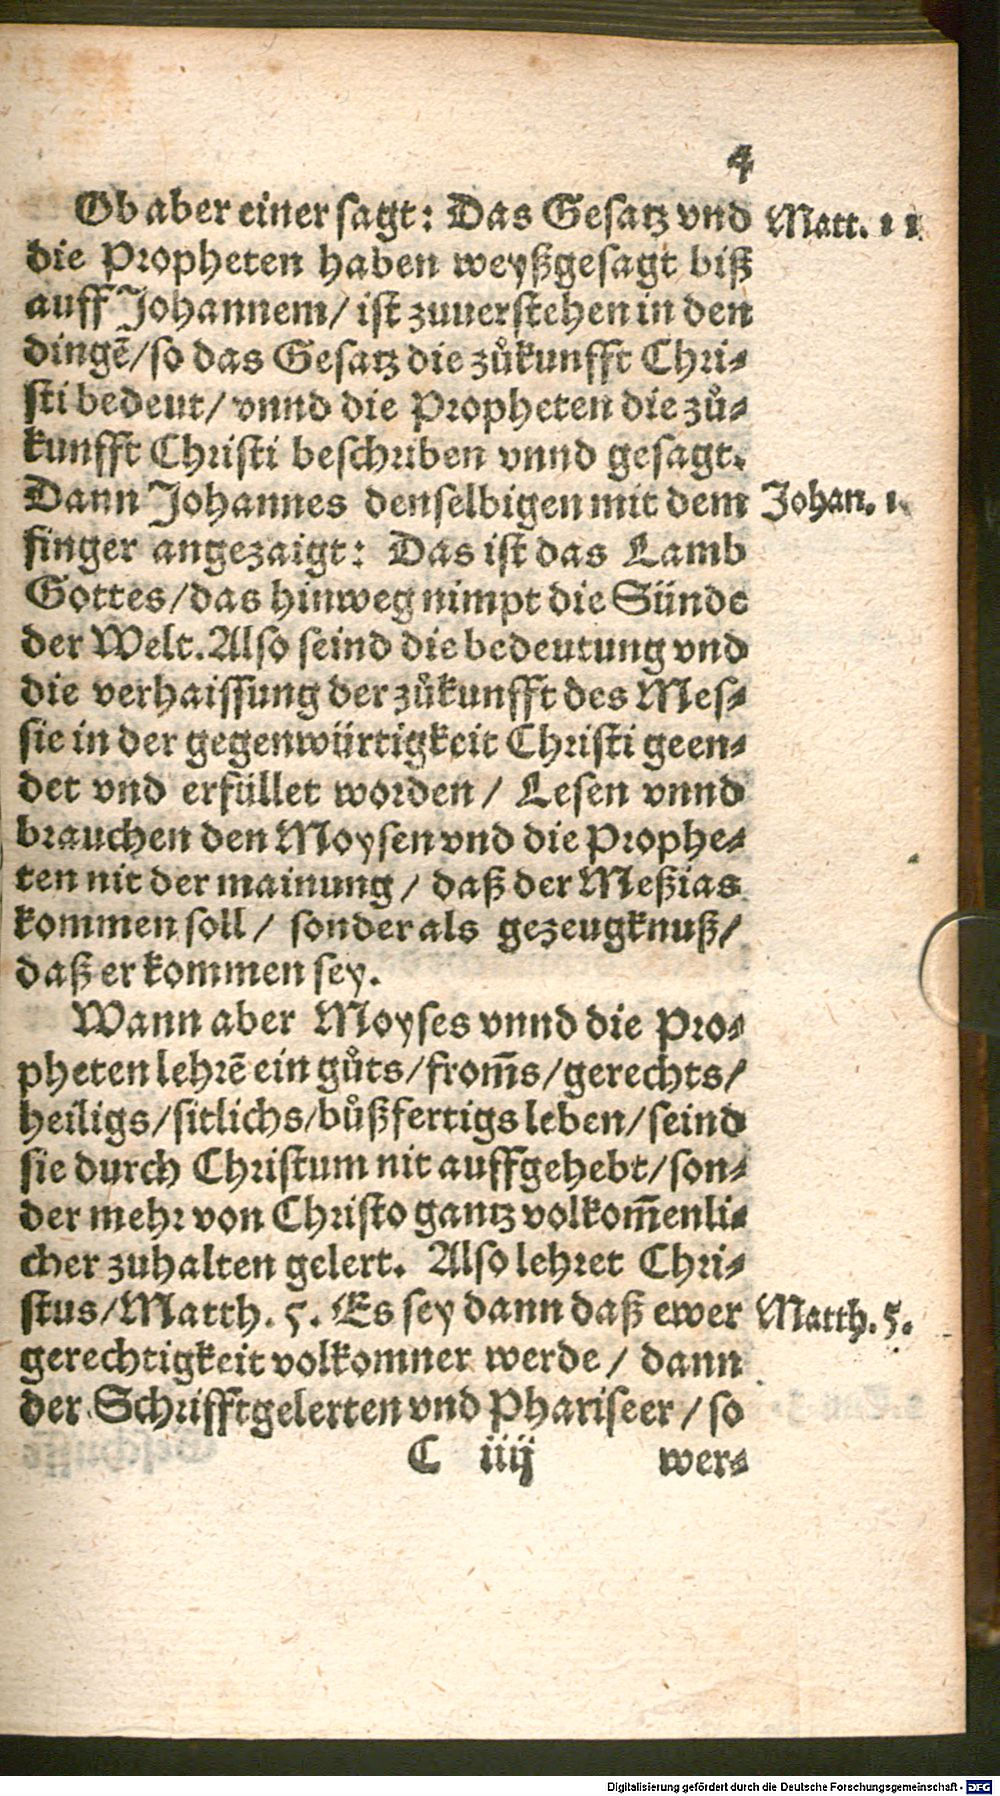 4
Ob aber einer sagt: Das Gesatz vnd
Matt. 11
die Propheten haben weyßgesagt biß
auff Johannem/ ist zuuerstehen in den
dingē/so das Gesatz die zůkunfft Chri-
sti bedeut/ vnnd die Propheten die zů-
kunfft Christi beschriben vnnd gesagt.
Dann Johannes denselbigen mit dem
Johan. 1.
finger angezaigt: Das ist das Lamb
Gottes/das hinweg nimpt die Sünde
der Welt. Also seind die bedeutung vnd
die verhaissung der zůkunfft des Mes-
sie in der gegenwürtigkeit Christi geen-
det vnd erfüllet worden/ Lesen vnnd
brauchen den Moysen vnd die Prophe-
ten nit der mainung/ daß der Meßias
kommen soll/ sonder als gezeugknuß/
daß er kommen sey.
Wann aber Moyses vnnd die Pro-
pheten lehrē ein gůts/from̄s/gerechts/
heiligs/sitlichs/bůßfertigs leben/seind
sie durch Christum nit auffgehebt/son-
der mehr von Christo gantz volkom̄enli-
cher zuhalten gelert. Also lehret Chri-
stus/Matth. 5. Es sey dann daß ewer
Matth. 5.
gerechtigkeit volkomner werde/ dann
der Schrifftgelerten vnd Phariseer/ so
C iiij wer-
Digitalisierung gefördert durch die Deutsche Forschungsgemeinschaft - DFG